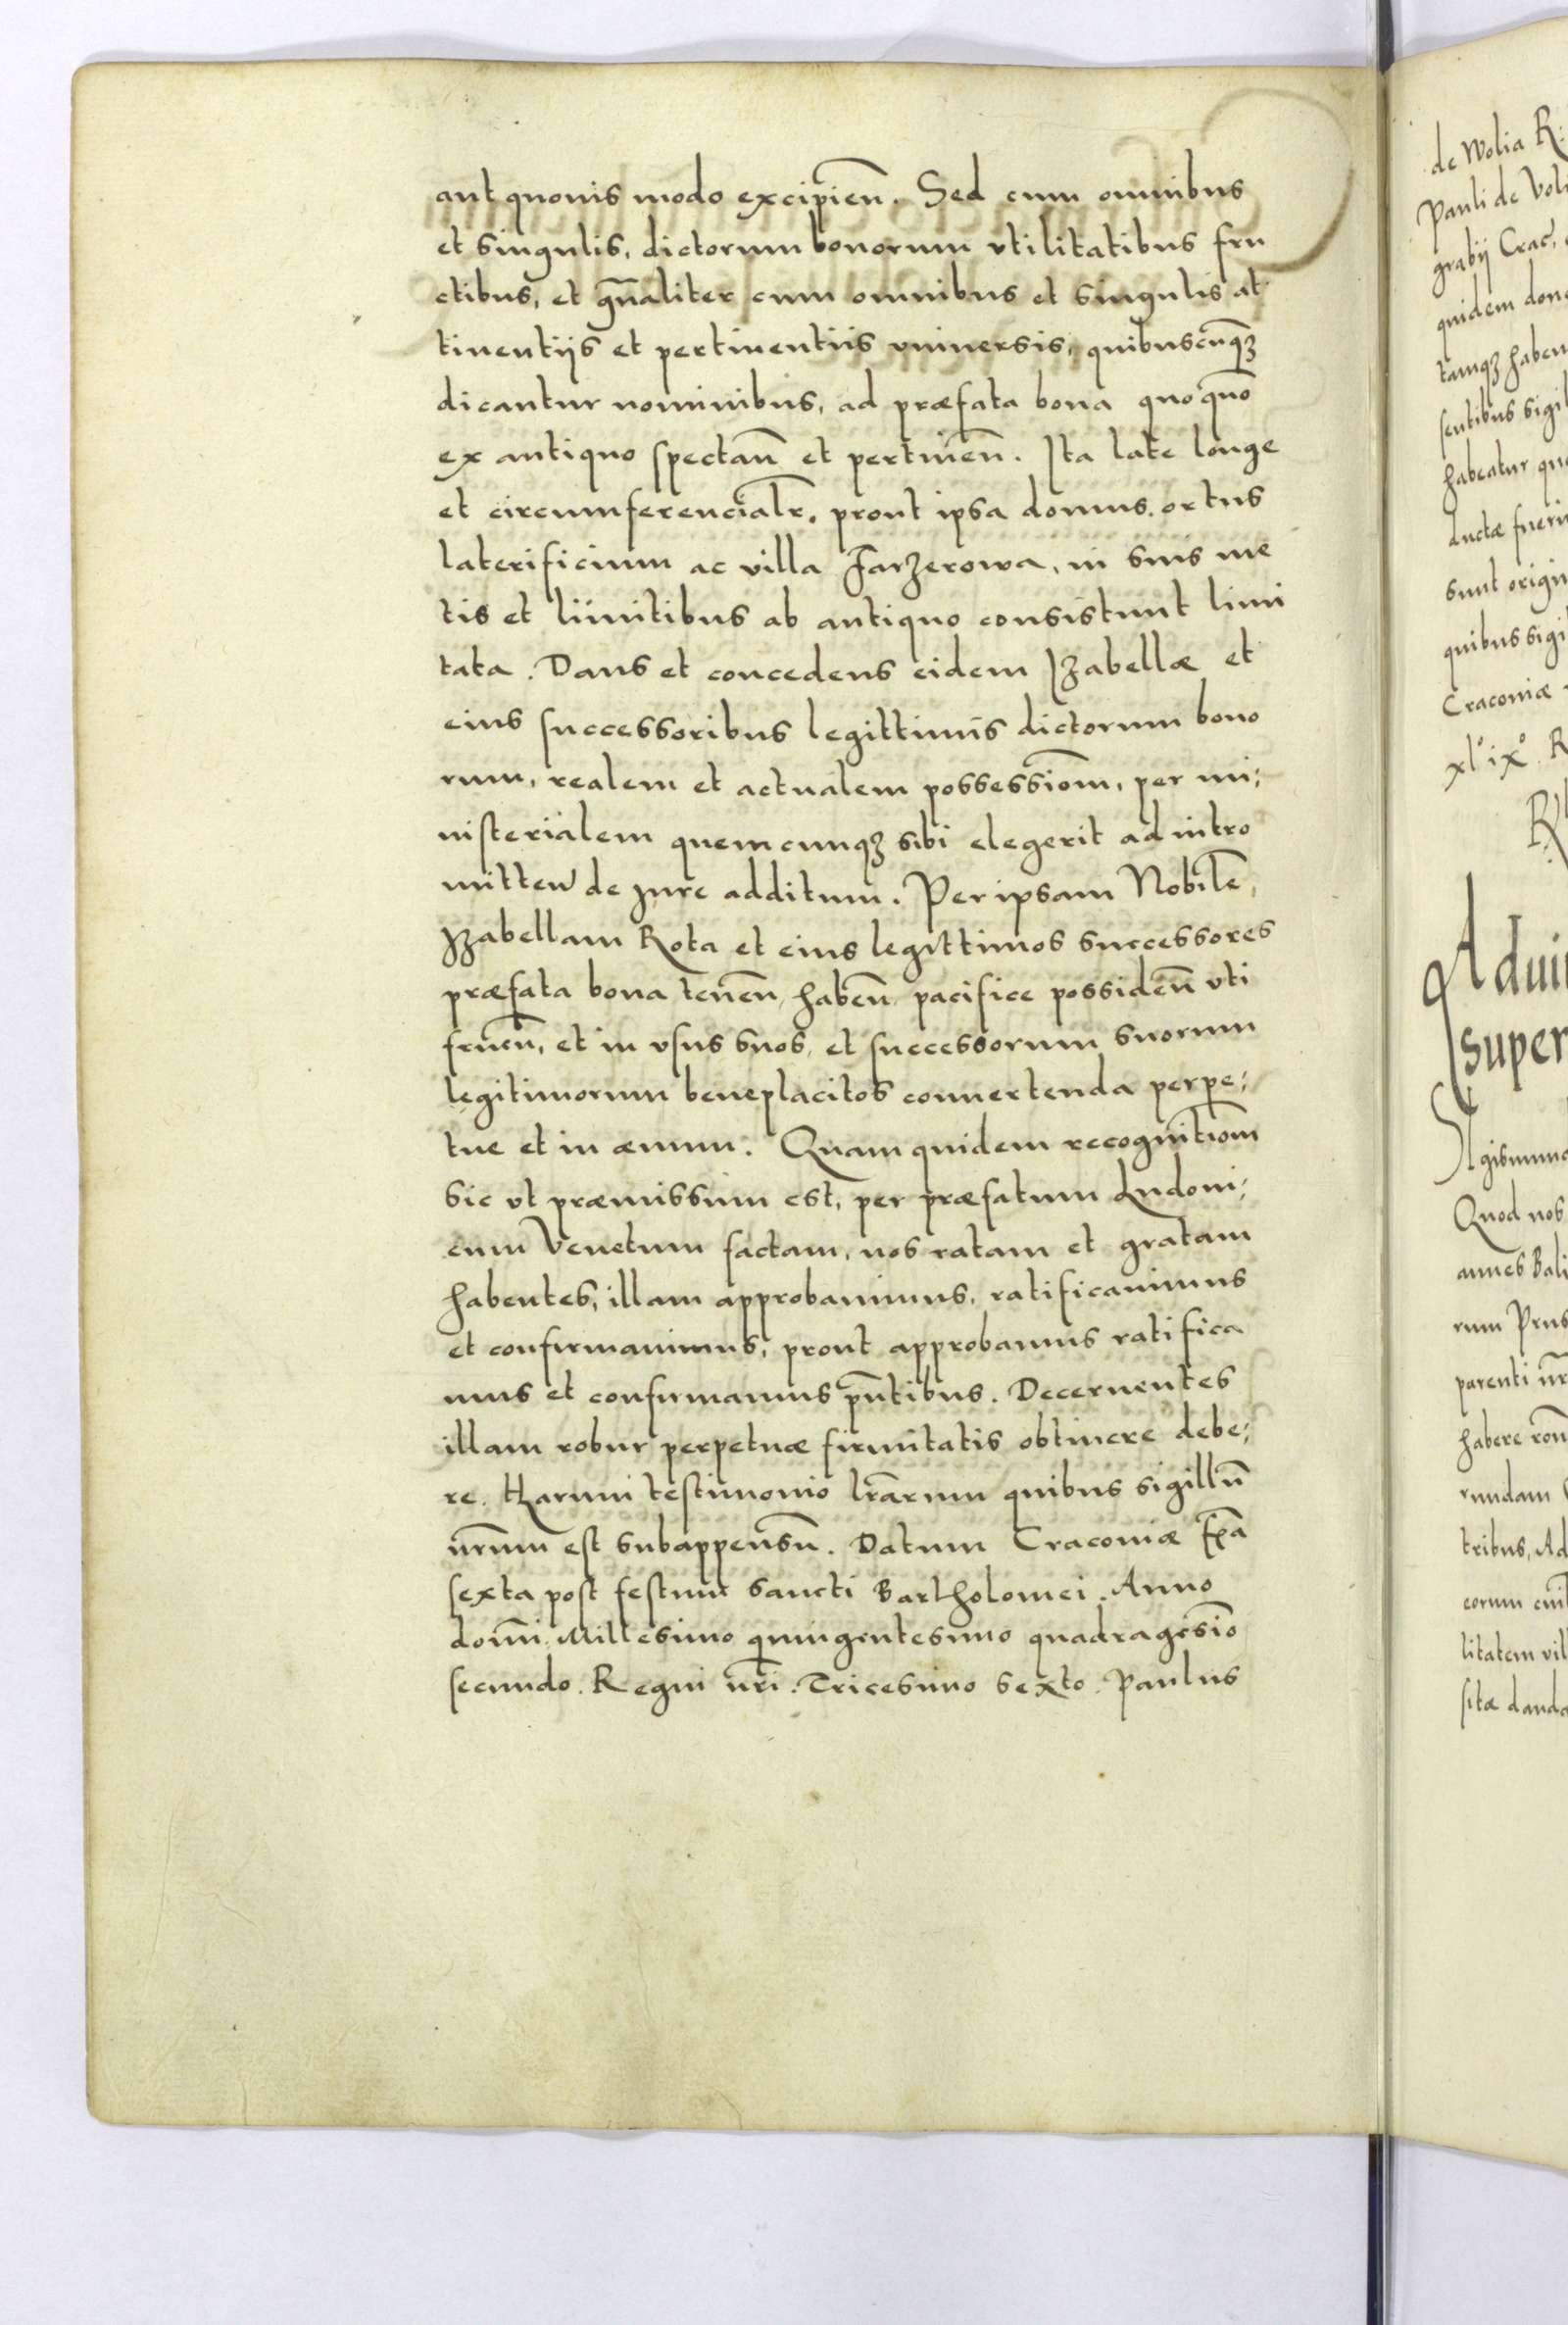 aut quouis modo excipien̄. Sed cum omnibus
et singulis, dictorum bonorum vtilitatibus fru
ctibus, et gn̄aliter cum omnibus et singulis at
tinentijs et pertinentiis vniuersis, quibuscūqȝ
dicantur nominibus, ad præfata bona quoquō
ex antiquo spectan̄ et pertinen̄. Ita late longe
et circumferencialr̄, prout ipsa domus, ortus
laterificium ac villa Jarzerowa, in suis me
tis et limitibus ab antiquo consistunt limi
tata. Dans et concedens eidem Izabellæ et
eius successoribus legittimis dictorum bono
rum, realem et actualem possessiōm, per mi:
nisterialem quemcunqȝ sibi elegerit ad intro
mitten̄ de iure additum. Per ipsam Nobilē
Izabellam Rota et eius legittimos successores
præfata bona tenēn, habēn, pacifice possidēn vti
fruēn, et in vsus suos, et successorum suorum
legitimorum beneplacitos conuertenda perpe:
tue et in æuum. Quam quidem recognitiōm
sic vt præmissum est, per præfatum Ludoui:
cum Venetum factam, nos ratam et gratam
habentes, illam approbauimus, ratificauimus
et confirmauimus, prout approbamus ratifica
mus et confirmamus pn̄tibus. Decernentes
illam robur perpetuæ firmitatis obtinere debe:
re. Harum testimonio lrārum quibus sigillū
nr̄um est subappensū. Datum Cracouiæ fr̄a
sexta post festum sancti Bartholomei. Anno
domī Millesimo quingentesimo quadragesīo
secundo. Regni nr̄i. Tricesimo sexto. Paulus
de Wolia R:
Pauli de Vol
grabij Crac̄,
quidem don
tamqȝ haben
sentibus sigil
habeatur qu
ductæ fueri
sunt origin
quibus sigi
Cracouiæ
xl°ix°. R
R
Adui
super
Sigismund
Quod nos
annes Bali
rum Prus
parenti nr̄
habere rōn
rundam
tribus, Ad
eorum civi
litatem vil
sitæ danda